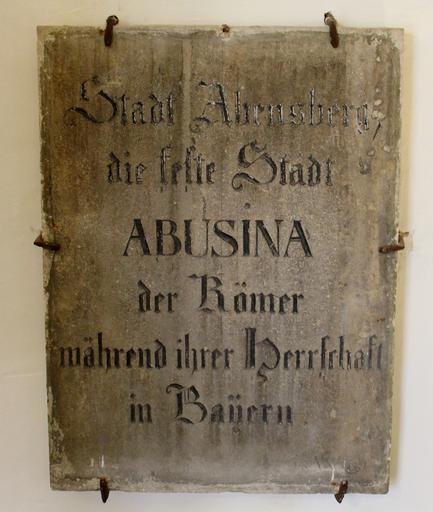 Stadt Abensberg,
die feste Stadt
ABUSINA
der Römer
während ihrer Herrschaft
in Baÿern